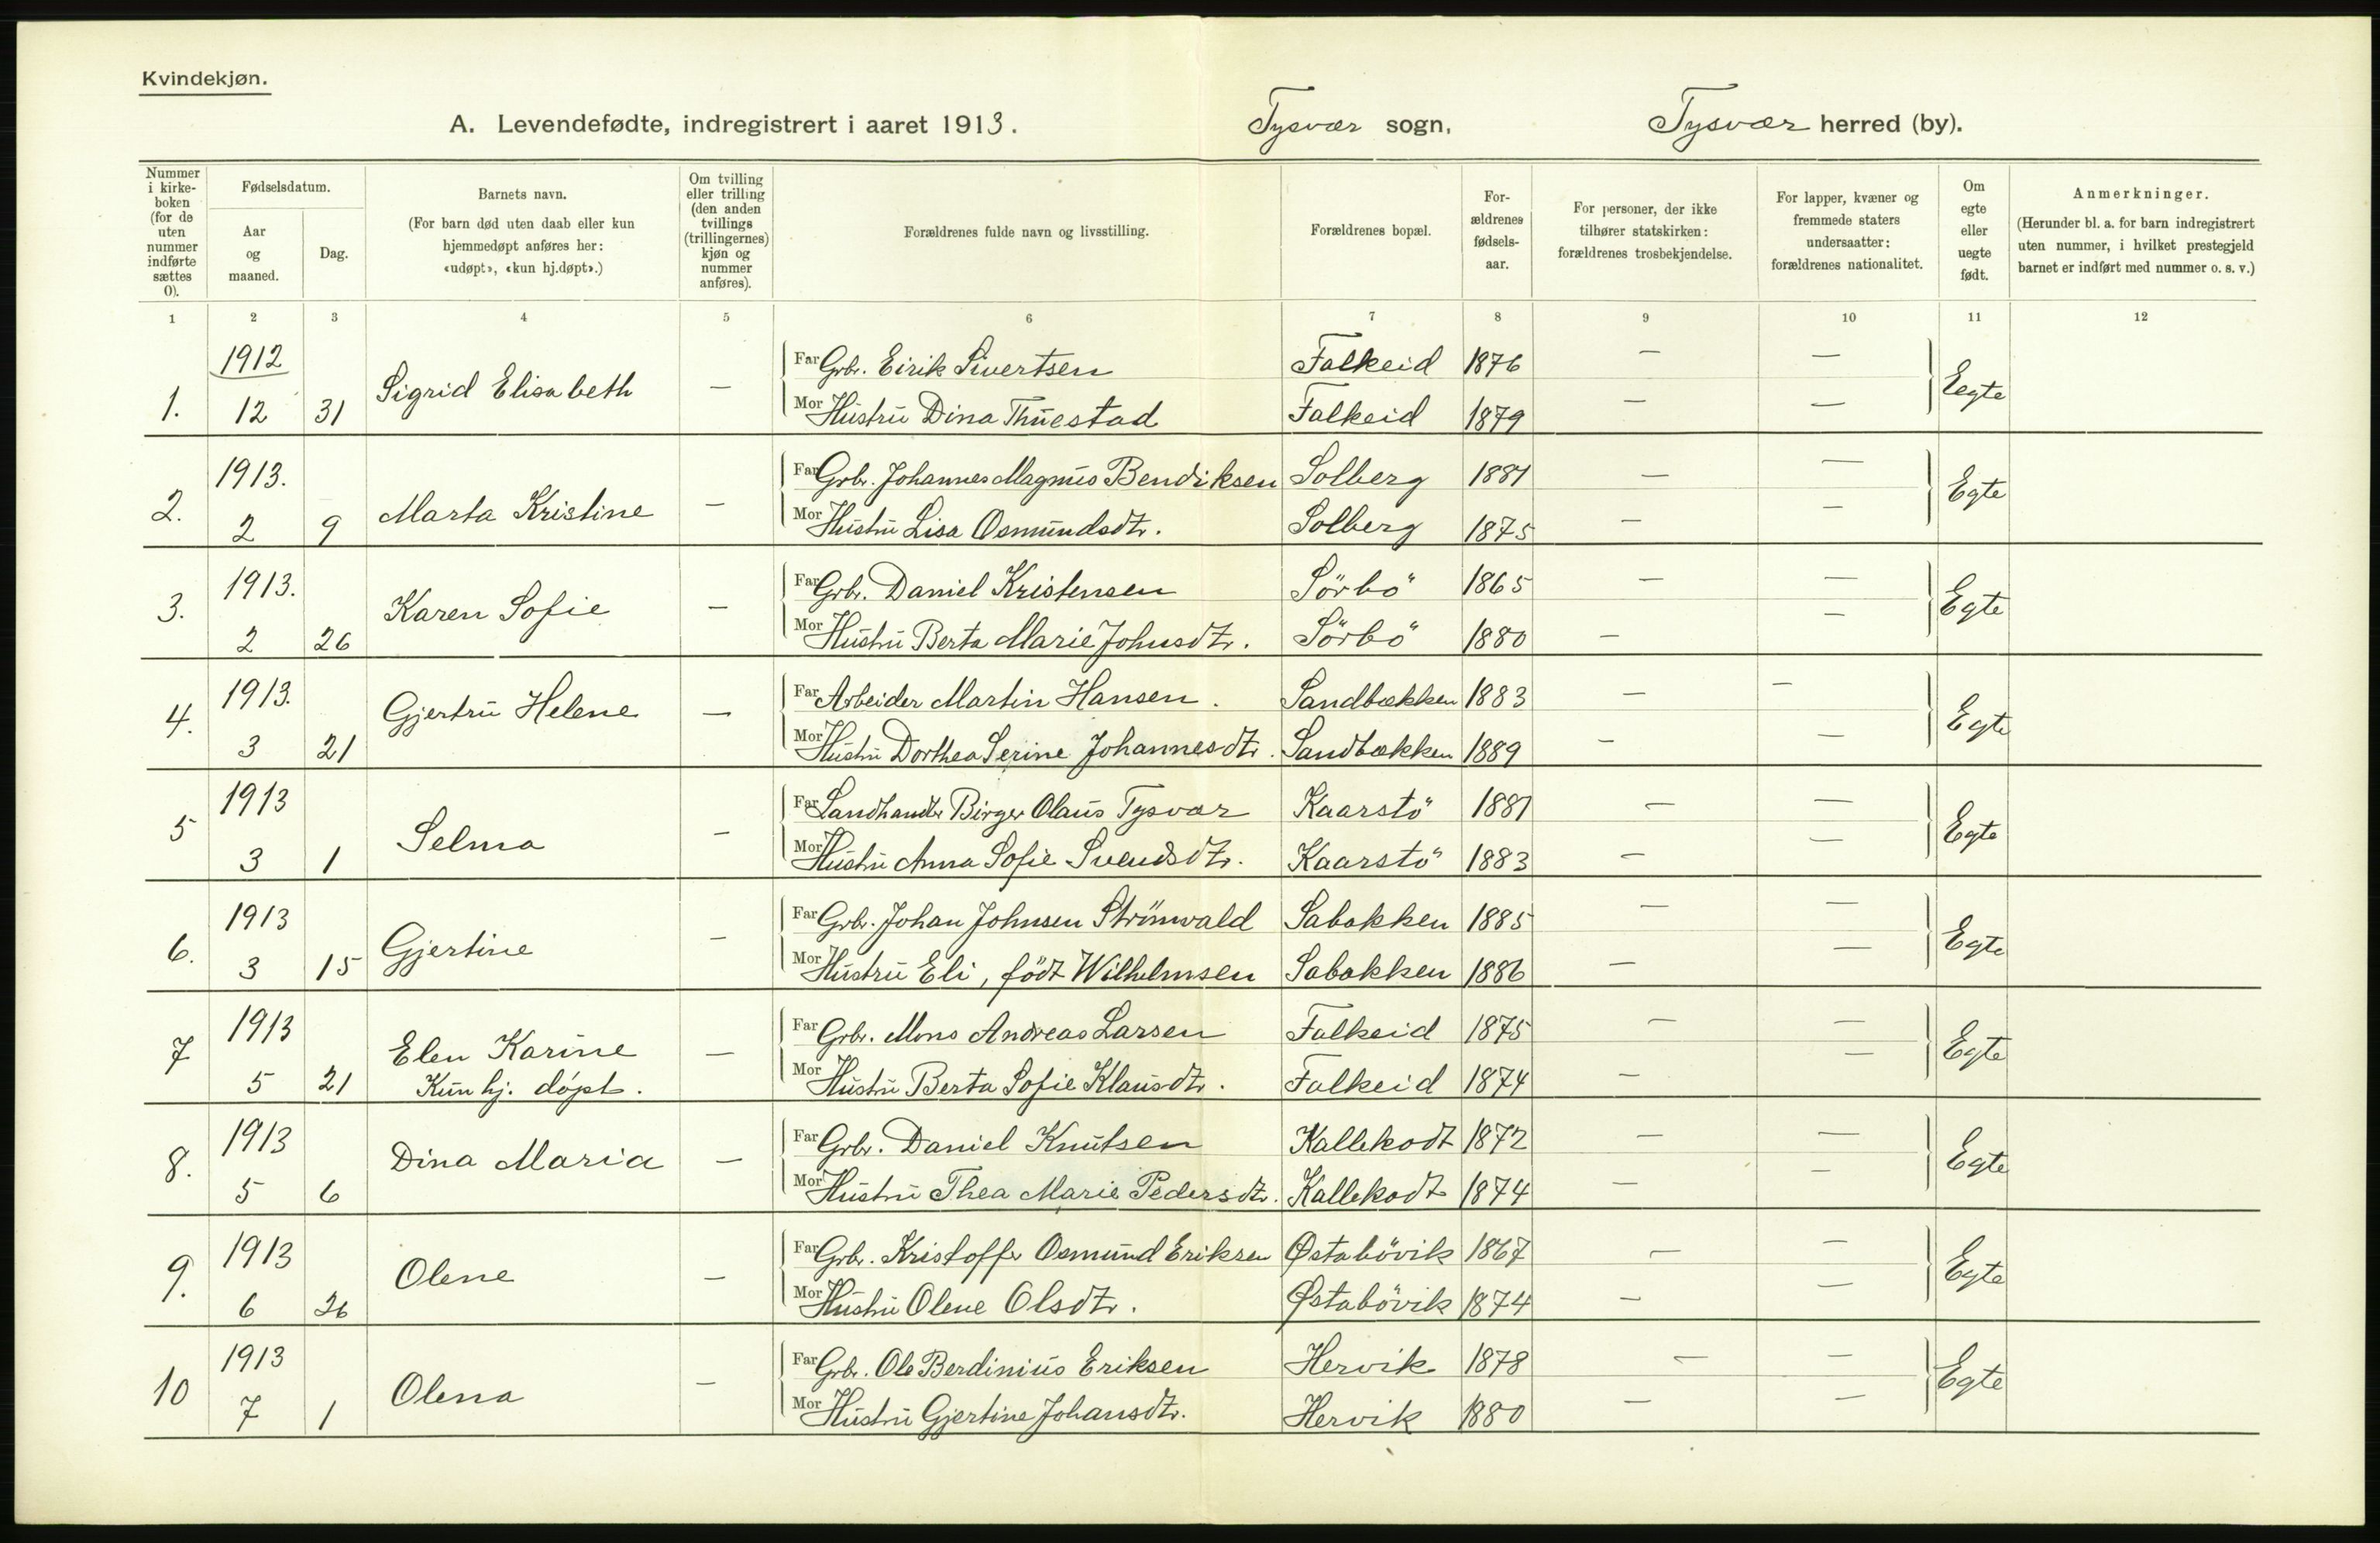 Kvindekjøn.
A. Levendefødte, indregistrert i aaret 1913. Tysvær sogn, Tysvær herred (by).
Nummer i kirke-boken (for de uten nummer indførte sættes 0).
Fødselsdatum.
Aar og maaned.
Dag.
Barnets navn.
(For barn død uten daab eller kun hjemmedøpt anføres her: «udøpt», «kun hj.døpt».)
Om tvilling eller trilling (den anden tvillings (trillingernes) kjøn og nummer anføres).
Forældrenes fulde navn og livsstilling.
Forældrenes bopæl.
For-ældrenes fødsels-aar.
For personer, der ikke tilhører statskirken: forældrenes trosbekjendelse.
For lapper, kvæner og fremmede staters undersaatter: forældrenes nationalitet.
Om egte eller uegte født.
Anmerkninger.
(Herunder bl. a. for barn indregistrert uten nummer, i hvilket prestegjeld barnet er indført med nummer o. s. v.)
1 2 3 4 5 6 7 8 9 10 11 12
1912 Far Grbr. Eirik Sivertsen Falkeid 1876 — —
1. 12 31 Sigrid Elisabeth — Mor Hustru Dina Thuestad Falkeid 1879 — — Eegte
1913. Far Grbr. Johannes Magnus Bendiksen Solberg 1881 — —
2. 2 9 Marta Kristine — Mor Hustru Lisa Osmundsdtr. Solberg 1875 — — Egte
1913. Far Grbr. Daniel Kristensen Sörbö 1865 — —
3. 2 26 Karen Sofie — Mor Hustru Berta Marie Johnsdtr. Sörbö 1880 — — Egte
1913. Far Arbeider Martin Hansen. Sandbækken 1883 — —
4. 3 21 Gjertru Helene — Mor Hustru Dorthea Serine Johannesdtr. Sandbækken 1889 — — Egte
1913 Far Landhandlr Birger Olaus Tysvær Kaarstö 1881 — —
5 3 1 Selma — Mor Hustru Anna Sofie Svendsdtr. Kaarstö 1883 — — Egte
1913 Far Grbr. Johan Johnsen Strömvald Sabakken 1885 — —
6. 3 15 Gjertine — Mor Hustru Eli, född Wilhelmsen Sabakken 1886 — — Egte
1913 Far Grbr. Mons Andreas Larsen Falkeid 1875 — —
7 5 21 Elen Karine — Mor Hustru Berta Sofie Klausdtr. Falkeid 1874 — — Egte
Kun hj. døpt.
1913 Far Grbr. Daniel Knutsen Kallekodt 1872 — —
8. 5 6 Dina Maria — Mor Hustru Thea Marie Pedersdtr. Kallekodt 1874 — — Egte
1913 Far Grbr. Kristoffer Osmund Eriksen Østabövik 1867 — —
9. 6 26 Olene — Mor Hustru Olene Olsdtr. Østabövik 1874 — — Egte
1913 Far Grbr. Ole Berdinius Eriksen Hervik 1878 — —
10 7 1 Olena — Mor Hustru Gjertine Johansdtr. Hervik 1880 — — Egte